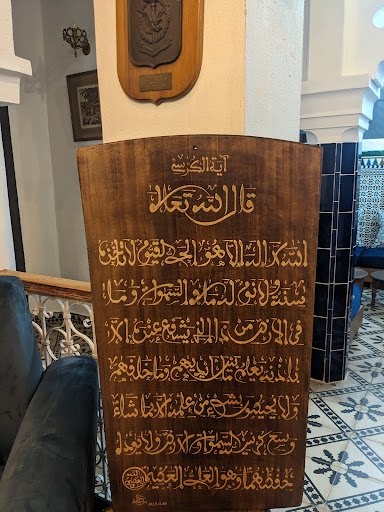 آية الكرسي
قال الله تعالى
الله لا إله إلا هو الحي القيوم لا تأخذه
سنة ولا نوم له ما في السموات وما
في الأرض من ذا الذي يشفع عنده إلا
بإذنه يعلم ما بين أيديهم وما خلفهم
ولا يحيطون بشيء من علمه إلا بما شاء
وسع كرسيه السموات والأرض ولا يئوده
حفظهما وهو العلي العظيم